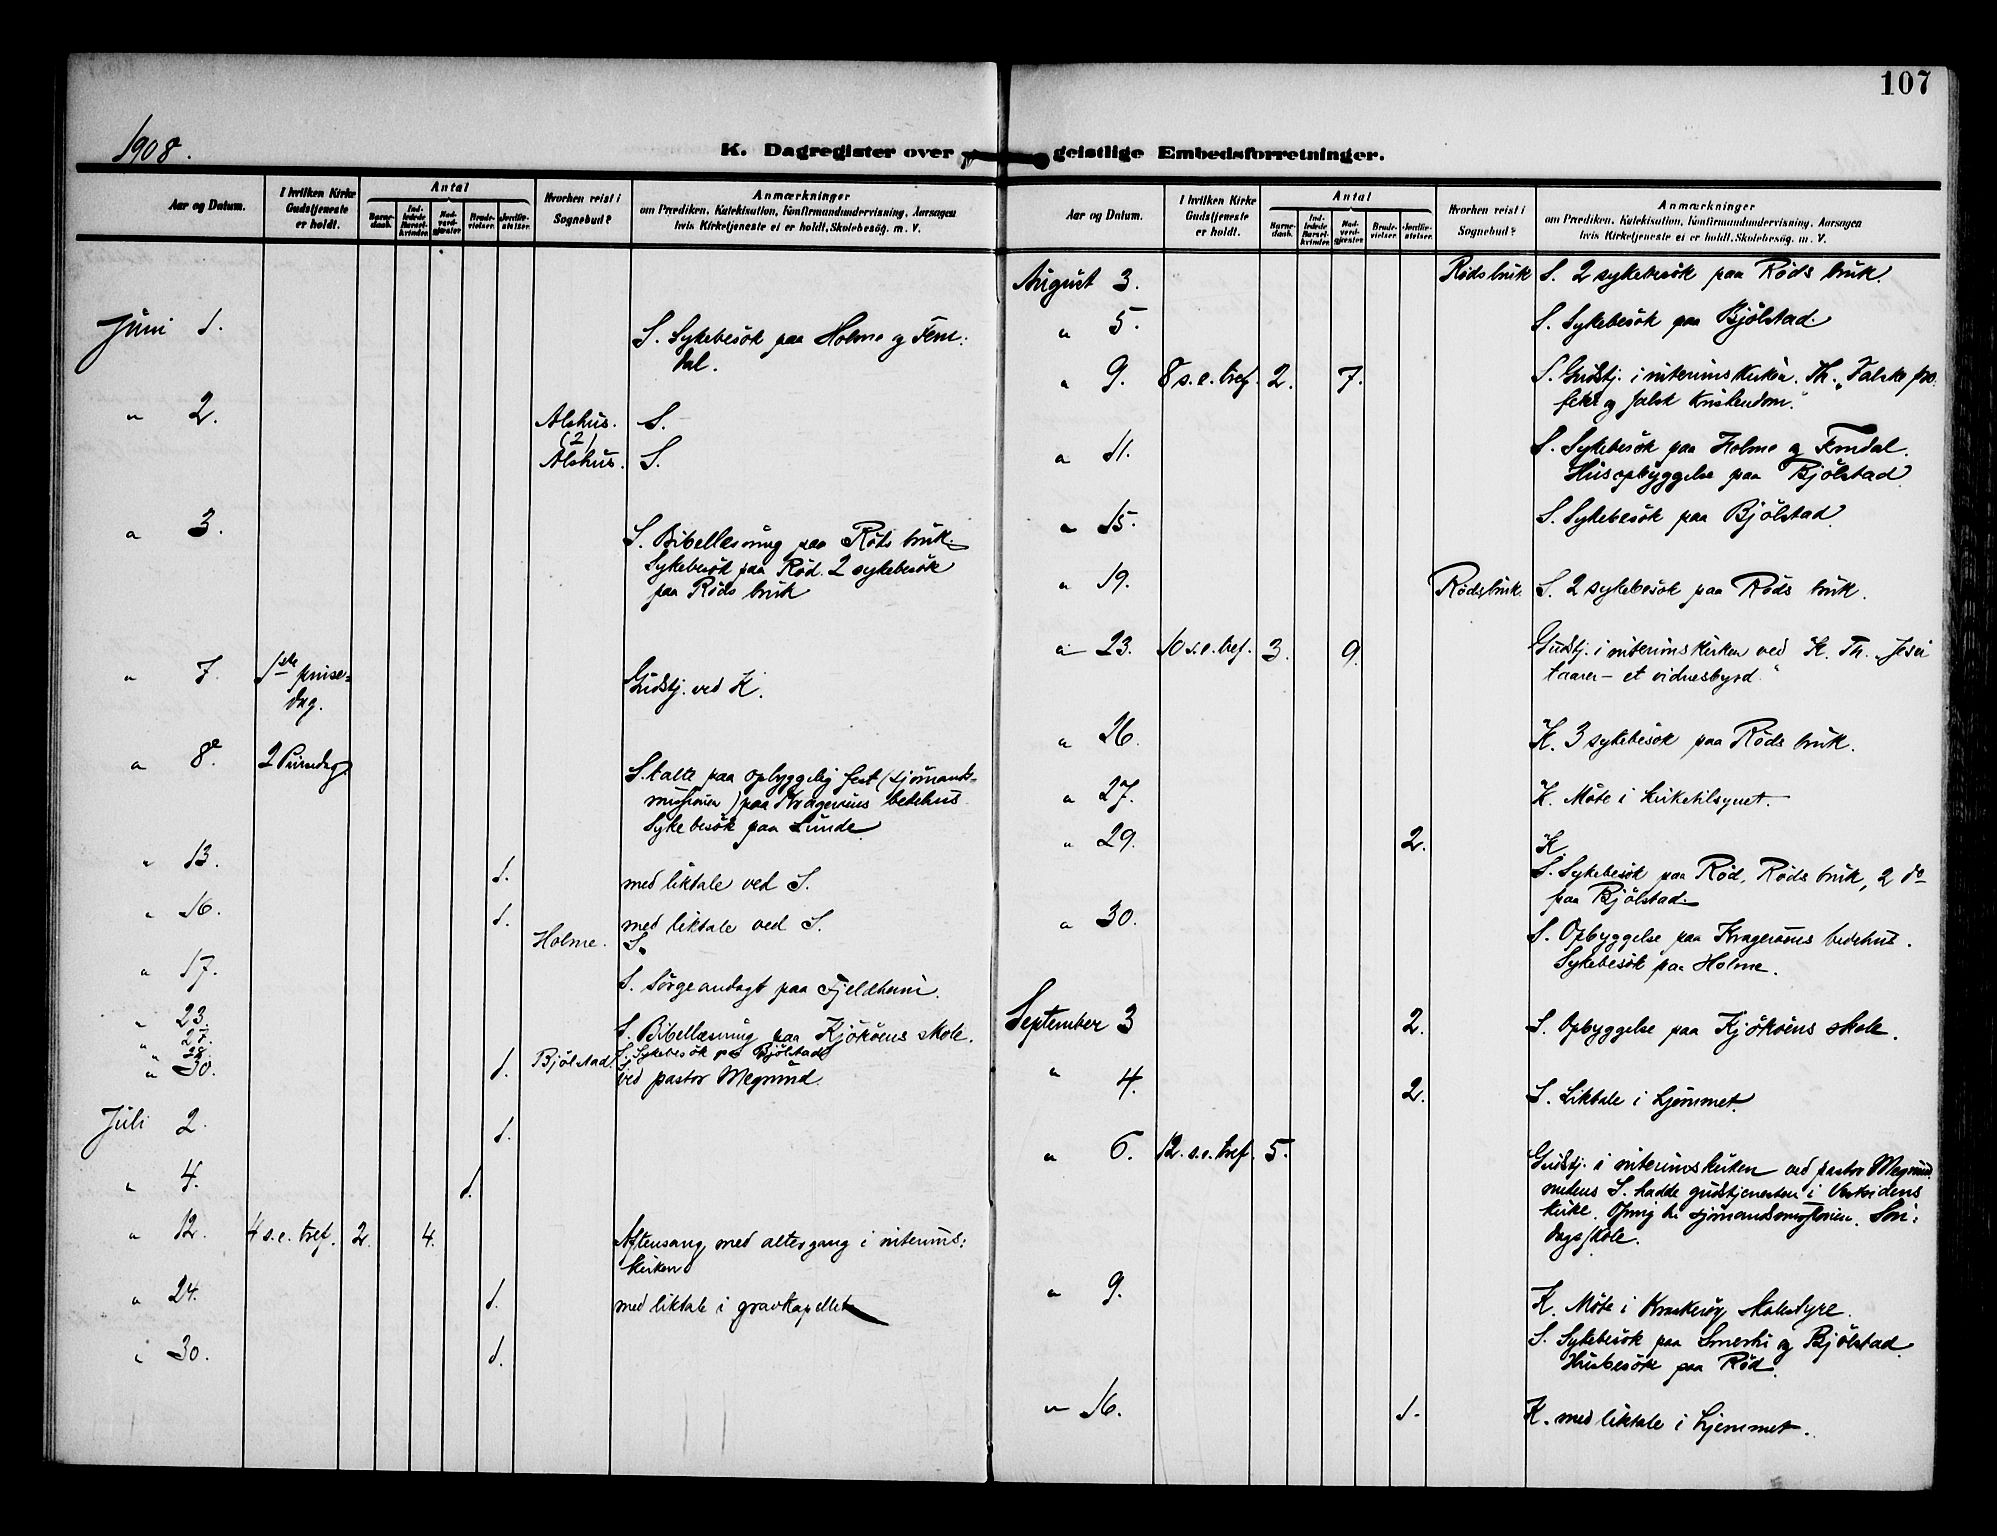 107
1908.
K. Dagregister over geistlige Embedsforretninger.
Aar og Datum.
I hvilken Kirke Gudstjeneste er holdt.
Antal
Barnedaab.
Indledede Barselkvinder.
Nadverdgjæster
Brudevielser.
Jordfæstelser.
Hvorhen reist i Sognebud?
Anmærkninger
om Prædiken, Katekisation, Konfirmandundervisning, Aarsagen
hvis Kirketjeneste ei er holdt, Skolebesøg. m. V.
Juni 1. S. Sykebesök paa Holme og Fem:
dal.
" 2. Alshus. S.
(2)
Alshus. S.
" 3. S. Bibellæsning paa Røds bruk.
Sykebesök paa Rød. 2 sykebesök
paa Røds bruk
" 7. 1ste pinse-
dag. Gudstj. ved K.
" 8e 2 Pinsedag. S. talte paa opbyggelig fest (sjømands-
missionen) paa Kragerøens bedehus.
Sykebesök paa Lunde.
" 13. 1. med liktale ved S.
" 16. 1. med liktale ved S.
Holme. S.
" 17. S. Sörgeandagt paa Fjeldheim.
" 23. S. Bibellæsning paa Kjököens skole.
" 27. S. Sykebesök paa Bjölstad
" 28. Bjölstad. S.
" 30. 1. ved pastor Wegrund.
Juli 2. 1.
" 4. 1.
" 12. 4 s.e. tref. 2. 4. Aftensang med altergang i interims:
kirken
" 24. 1. med liktale i gravkapellet
" 30. 1.
Aar og Datum.
I hvilken Kirke Gudstjeneste er holdt.
Antal
Barnedaab.
Indledede Barselkvinder.
Nadverdgjæster
Brudevielser.
Jordfæstelser.
Hvorhen reist i Sognebud?
Anmærkninger
om Prædiken, Katekisation, Konfirmandundervisning, Aarsagen
hvis Kirketjeneste ei er holdt, Skolebesøg. m. V.
August 3. Rødsbruk S. 2 sykebesök paa Røds bruk.
" 5. S. Sykebesök paa Bjölstad.
" 9. 8 s.e. tref. 2. 7. S. Gudstj. i interimskirken. Th. "Falske pro
feter og falsk kristendom."
" 11. S. Sykebesök paa Holme og Femdal.
Husopbyggelse paa Bjölstad
" 15. S. Sykebesök paa Bjölstad.
" 19. Rødsbruk. S. 2 sykebesök paa Røds bruk.
" 23. 10 s.e. tref. 3. 9. Gudstj. i interimskirken ved K. Th. "Jesu
taarer – et vidnesbyrd."
" 26. K. 3 sykebesök paa Røds bruk.
" 27. K. Møte i kirketilsynet.
" 29. 2. K.
S. Sykebesök paa Rød, Røds bruk, 2 do
paa Bjölstad.
" 30. S. Opbyggelse paa Kragerøens bedehus.
Sykebesök paa Holme.
September 3 2. S. Opbyggelse paa Kjököens skole.
" 4. 2. S. Liktale i hjemmet.
" 6. 12. s.e. tref. 5. Gudstj. i interimskirken ved pastor Wegrund
metens S. hadde gudstjenesten i
kirke. til sjømandsmissionen. Søn:
dagsskole.
" 9. K. Møte i Kraakerøy skolestyre.
S. Sykebesök paa og Bjölstad.
Husbesök paa Rød.
" 16. 1. K. med liktale i hjemmet.